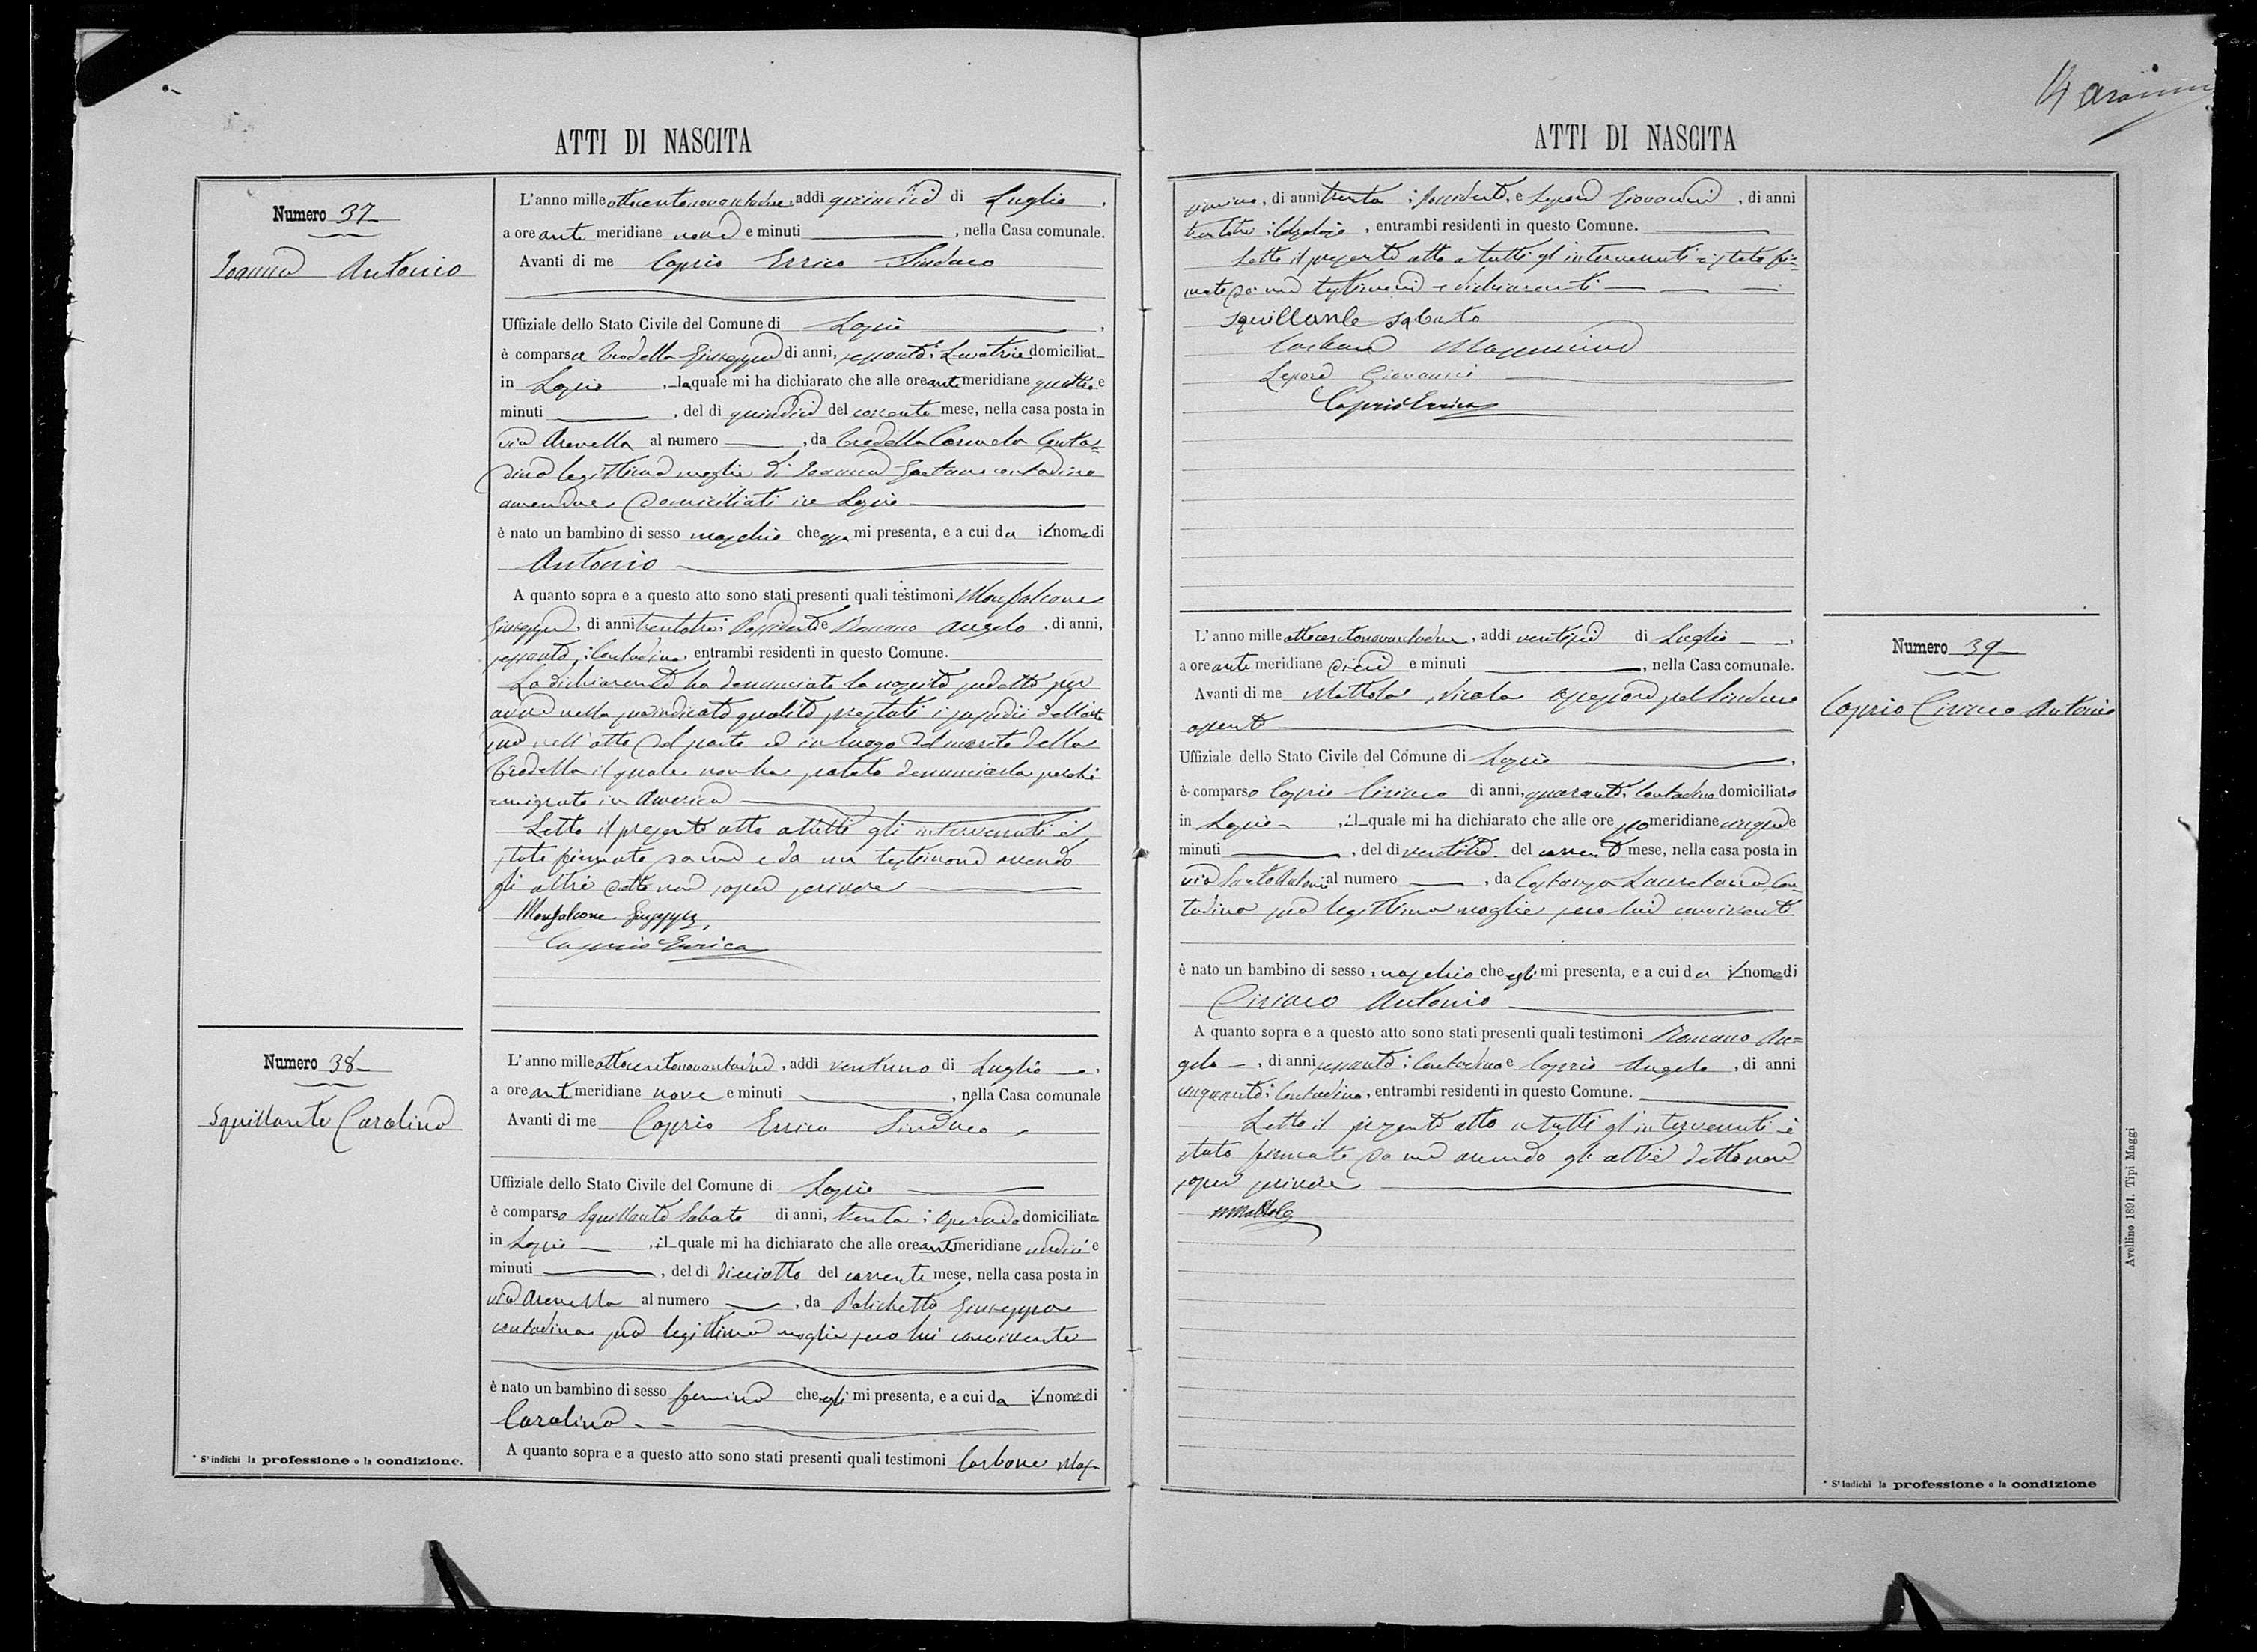 ATTI DI NASCITA
Numero 37
Ioanna Antonio
L'anno milleottocentonovantadue, addì quindici di Luglio,
a ore anti meridiane nove e minuti , nella Casa comunale.
Avanti di me Caprio Errico Sindaco
Uffiziale dello Stato Civile del Comune di Lapio
è comparsa Trodella Giuseppa di anni, sessanta; Levatrice domiciliat
in Lapio , la quale mi ha dichiarato che alle ore anti meridiane quattro e
minuti , del dì quindici del corrente mese, nella casa posta in
via Arenella al numero , da Trodella Carmela Conta=
dina legittima moglie di Ioanna Gaetano contadino
amendue domiciliati in Lapio
è nato un bambino di sesso maschio che essa mi presenta, e a cui da il nome di
Antonio
A quanto sopra e a questo atto sono stati presenti quali testimoni Monfalcone
Giuseppe, di anni trentotto; Possidente e Romano Angelo, di anni,
sessanta; Contadino, entrambi residenti in questo Comune.
La dichiarante ha denunciato la nascita sudetta per
avere nella sua indicata qualità prestati i sussidii dell'arte
sua nell'atto del parto ed in luogo del marito della
Trodella il quale non ha potuto denunciarla perchè
emigrato in America
Letto il presente atto a tutti gli intervenuti è
stato firmato da me e da un testimone avendo
gli altri detto non saper scrivere
Monfalcone Giuseppe
Caprio Errico
Numero 38
Squillante Carolina
L'anno milleottocentonovantadue, addì ventuno di Luglio,
a ore anti meridiane nove e minuti , nella Casa comunale
Avanti di me Caprio Errico Sindaco
Uffiziale dello Stato Civile del Comune di Lapio
è comparso Squillante Sabato di anni, trenta; Operaio domiciliato
in Lapio , il quale mi ha dichiarato che alle ore anti meridiane undici e
minuti , del dì diciotto del corrente mese, nella casa posta in
via Arenella al numero , da Polichetti Giuseppa
contadina sua legittima moglie seco lui convivente
è nato un bambino di sesso femina che egli mi presenta, e a cui da il nome di
Carolina
A quanto sopra e a questo atto sono stati presenti quali testimoni Carbone Mas
* S'indichi la professione o la condizione.
14
ATTI DI NASCITA
simino, di anni trenta; Possidente, e Lepore Giovanni, di anni
; Calzolaio, entrambi residenti in questo Comune.
Letto il presente atto a tutti gl'intervenuti è stato fir=
mato da me testimoni e dichiarante
Squillante Sabato
Carbone Massimino
Lepore Giovanni
Caprio Errico
Numero 39
Caprio Ciriaco Antonio
L'anno milleottocentonovantadue, addì ventisei di Luglio,
a ore anti meridiane dieci e minuti , nella Casa comunale.
Avanti di me Mottola Nicola assessore pel Sindaco
assente
Uffiziale dello Stato Civile del Comune di Lapio
è comparso Caprio Ciriaco di anni, quaranta; Contadino domiciliato
in Lapio , il quale mi ha dichiarato che alle ore po meridiane cinque e
minuti , del dì ventitre del corrente mese, nella casa posta in
via Sant'Antonio al numero , da Costanza Lauretana, Con
tadina sua legittima moglie seco lui convivente
è nato un bambino di sesso maschio che egli mi presenta, e a cui da il nome di
Ciriaco Antonio
A quanto sopra e a questo atto sono stati presenti quali testimoni Romano An=
gelo , di anni sessanta; Contadino e Caprio Angelo, di anni
cinquanta; Contadino, entrambi residenti in questo Comune.
Letto il presente atto a tutti gl'intervenuti è
stato firmato da me avendo gli altri detto non
saper scrivere
NMottola
* S'indichi la professione o la condizione
Avellino 1891. Tipi Maggi